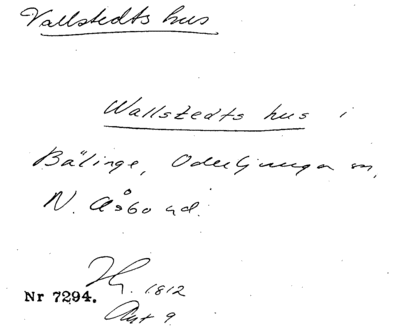 Vallstedts hus
Wallstedts hus i
Bälinge, Oderljunga sn,
N. Åsbo hd.
1812
Nr 7294.
Akt 9